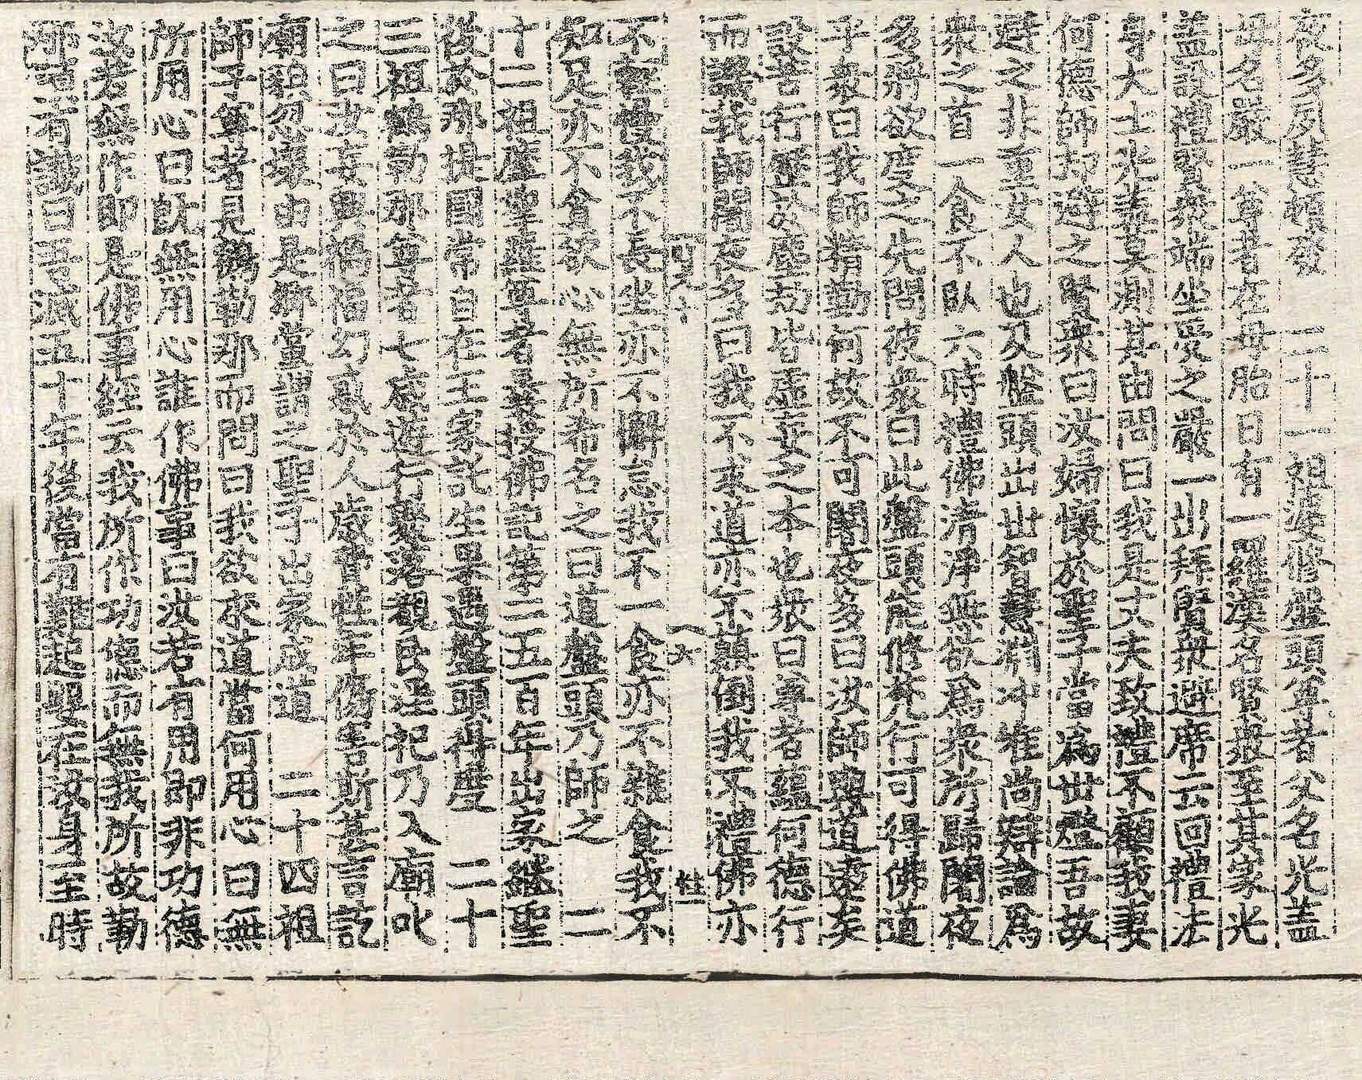 夜多夙慧頓發　二十一祖婆修盤頭尊者父名光盖
母名嚴一尊者在母胎日有一羅漢名賢衆至其家光
盖設禮賢衆端坐受之嚴一出拜賢衆避席云回禮法
身大士光盖莫測其由問曰我是丈夫致禮不顧我妻
何德師却避之賢衆曰汝婦懷於聖子當爲世燈吾故
避之非重女人也及盤頭出世知慧淵冲惟尚辯論爲
衆之首一食不臥六時禮佛清淨無欲爲衆所歸闍夜
多將欲度之先問彼衆曰此盤頭能修梵行可得佛道
乎衆曰我師精勤何故不可闍夜多曰汝師與道遠矣
設苦行歷於塵劫皆虛妄之本也衆曰尊者蘊何德行
而譏我師闍夜多曰我不求道亦不顚倒我不禮佛亦
性二
不輕慢我不長坐亦不懈怠我不一食亦不雜食我不
知足亦不貪欲心無所希名之曰道盤頭乃師之　二
十二祖摩拏羅尊者最授佛記第二五百年出家繼聖
後於那提國常自在王家託生果遇盤頭得度　二十
三祖鶴勒那尊者七歲遊行聚落觀民淫祀乃入廟叱
之曰汝妄興禍福幻惑於人歲費牲牢傷害斯甚言訖
廟貌忽壞由是鄕黨謂之聖子出家成道　二十四祖
師子尊者見鶴勒那而問曰我欲求道當何用心曰無
所用心曰旣無用心誰作佛事曰汝若有用即非功德
汝若無作即是佛事經云我所作功德而無我所故勒
那召有讖曰吾滅五十年後當有難起嬰在汝身至時